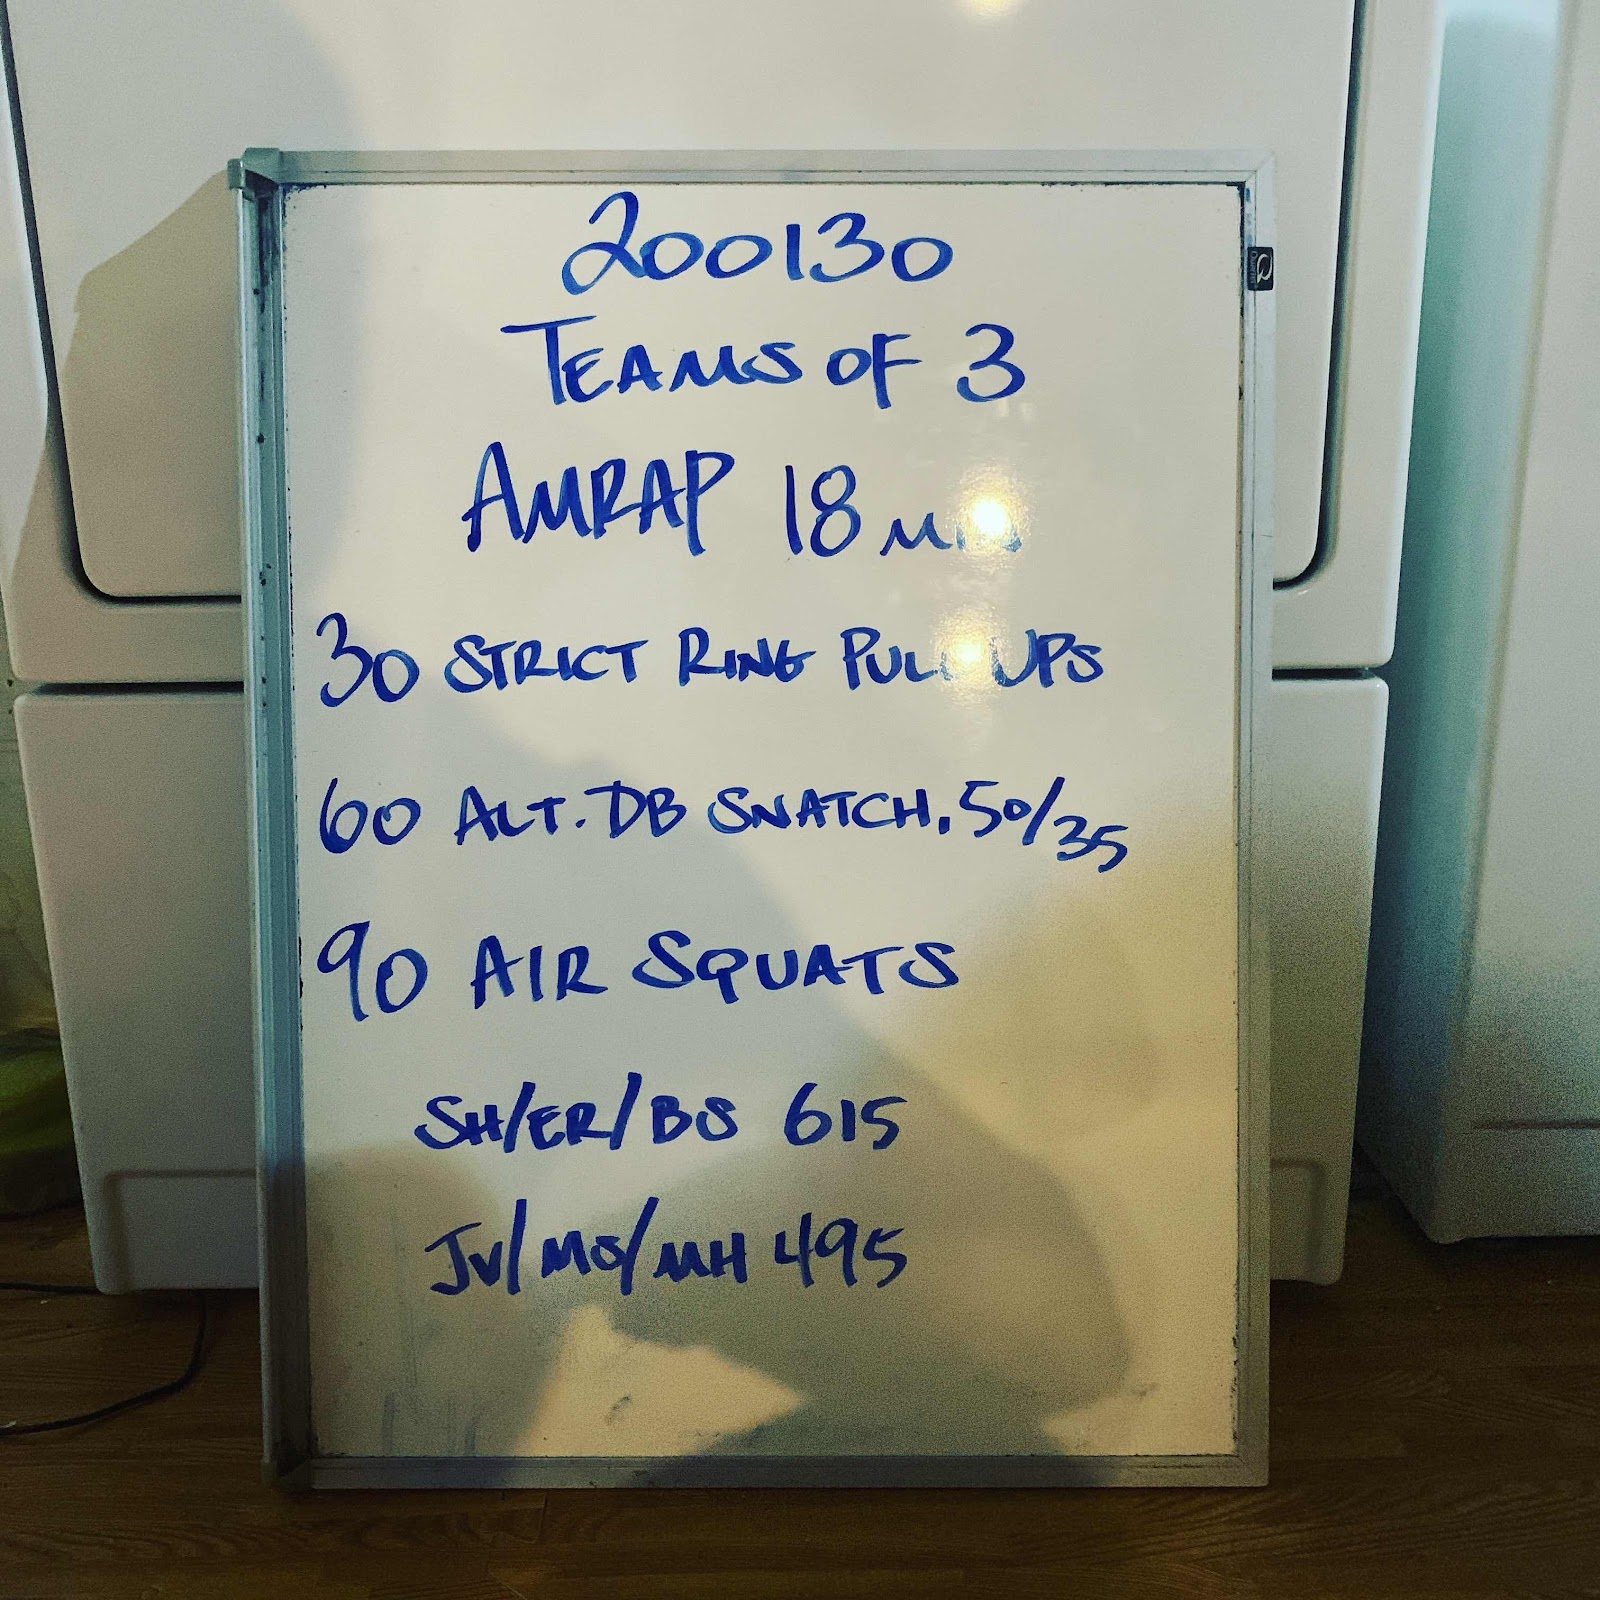 200130
TEAMS OF 3
AMRAP 18
30 STRICT RING PULL UPS
60 ALT. DB SNATCH, 50/35
90 AIR SQUATS
SH/ER/BS 615
JV/MS/MH 495